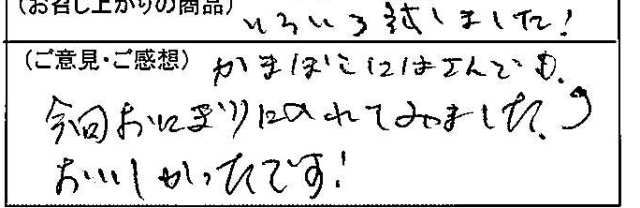 (お召し上がりの商品)
いろいろ試しました!
(ご意見・ご感想) かまぼこにはさんでも、
今回おにぎりに入れてみました。
おいしかったです!